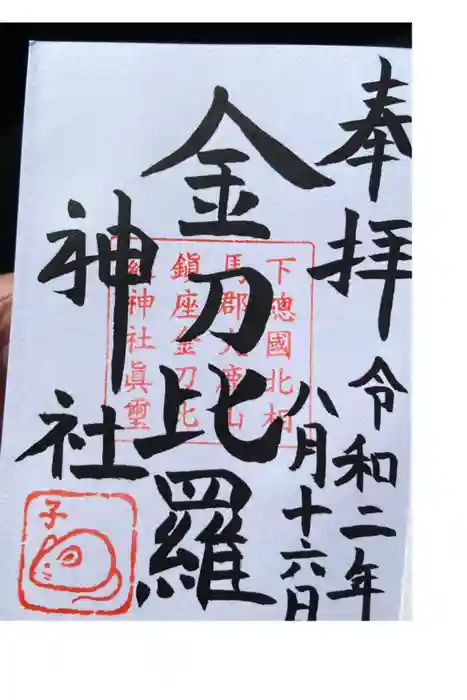 奉拝
令和二年
八月十六日
金刀比羅
神社
下總國北相
馬郡大鹿山
鎮座金刀比
羅神社眞璽
子